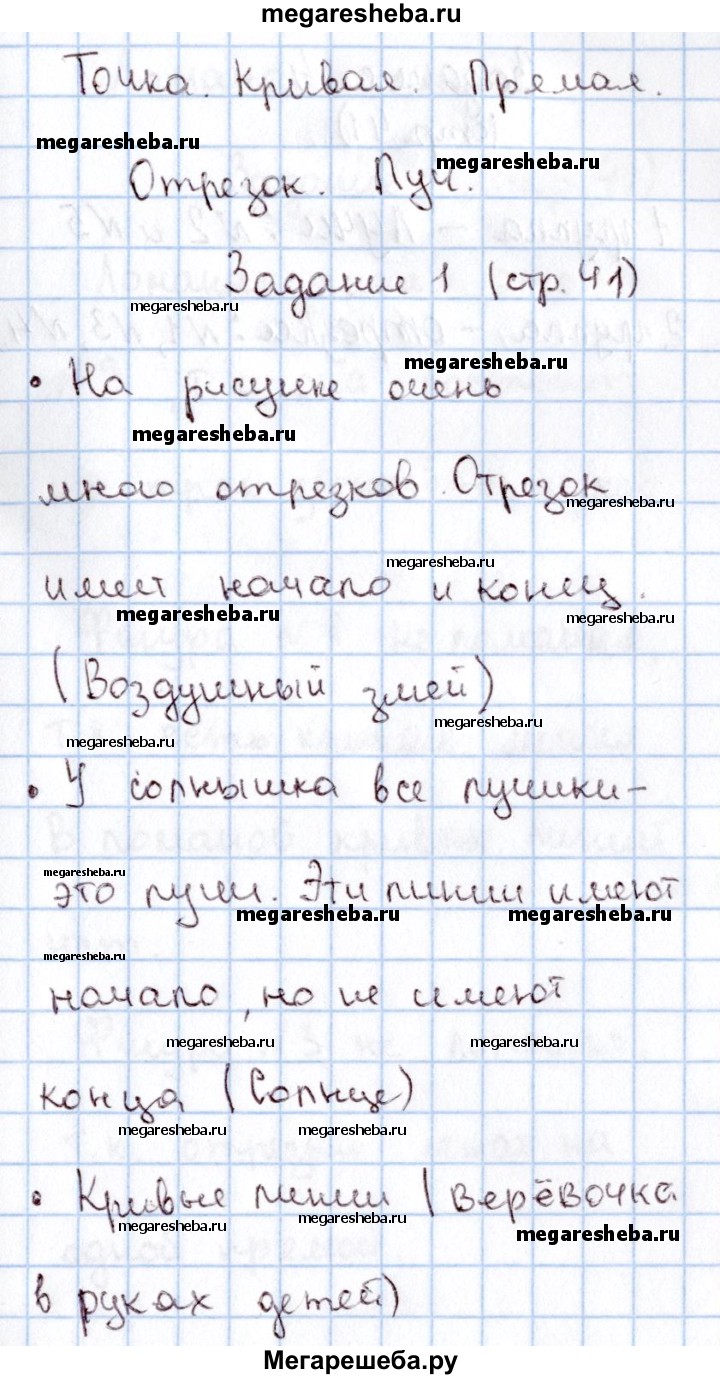 megaresheba.ru
Точка. Кривая. Прямая.
megaresheba.ru
megaresheba.ru
Отрезок. Луч.
Задание 1 (стр. 41)
megaresheba.ru
megaresheba.ru
• На рисунке очень
megaresheba.ru
много отрезков. Отрезок
megaresheba.ru
megaresheba.ru
имеет начало и конец.
megaresheba.ru
megaresheba.ru
(Воздушный змей)
megaresheba.ru
megaresheba.ru
• У солнышка все лучики-
megaresheba.ru
это лучи. Эти линии имеют
megaresheba.ru
megaresheba.ru
megaresheba.ru
начало, но не имеют
megaresheba.ru
megaresheba.ru
конца (Солнце)
megaresheba.ru
megaresheba.ru
• Кривые линии (верёвочка
megaresheba.ru
megaresheba.ru
megaresheba.ru
в руках детей)
Мегарешеба.ру